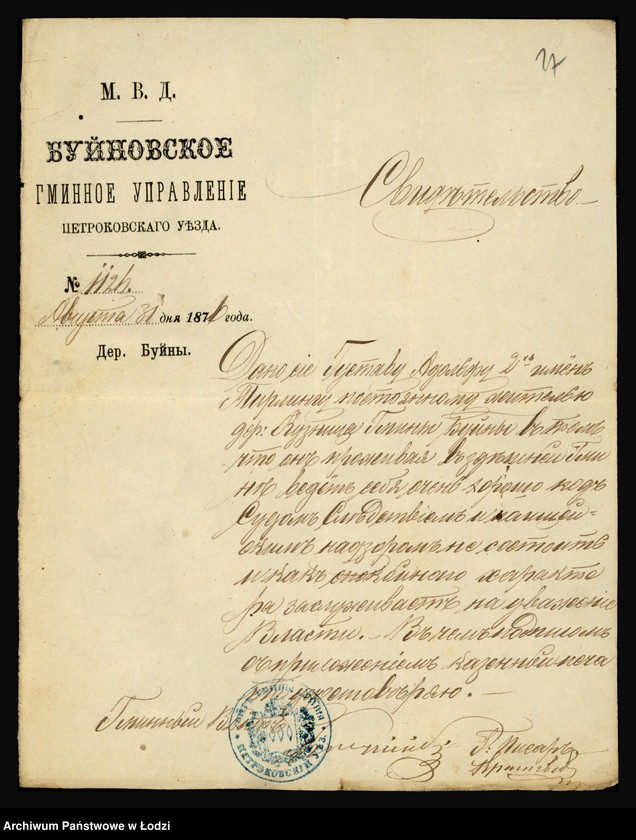 27
М. В. Д.
БУЙНОВСКОЕ
ГМИННОЕ УПРАВЛЕНІЕ
ПЕТРОКОВСКАГО УѢЗДА.
№ 1126.
Августа 31 дня 1876 года.
Дер. Буйны.
Свидѣтельство
Дано сіе Густаву Адольфу 2хъ имёнъ
постоянному жителью
дер: Кузница Гмины Буйны въ томъ
что онъ проживая въ здѣшней Гми
нѣ ведётъ себя очень хорошо подъ
Судомъ Слѣдствіемъ и полицей-
скимъ надзоромъ не состоитъ
и какъ спокойнаго характе
ра заслуживаетъ на уваженіе
Власти. Въ чемъ подписомъ
съ приложеніемъ казенный печа
ти удостовѣряю.
Гминный Войтъ
Г: Писарь
Archiwum Państwowe w Łodzi